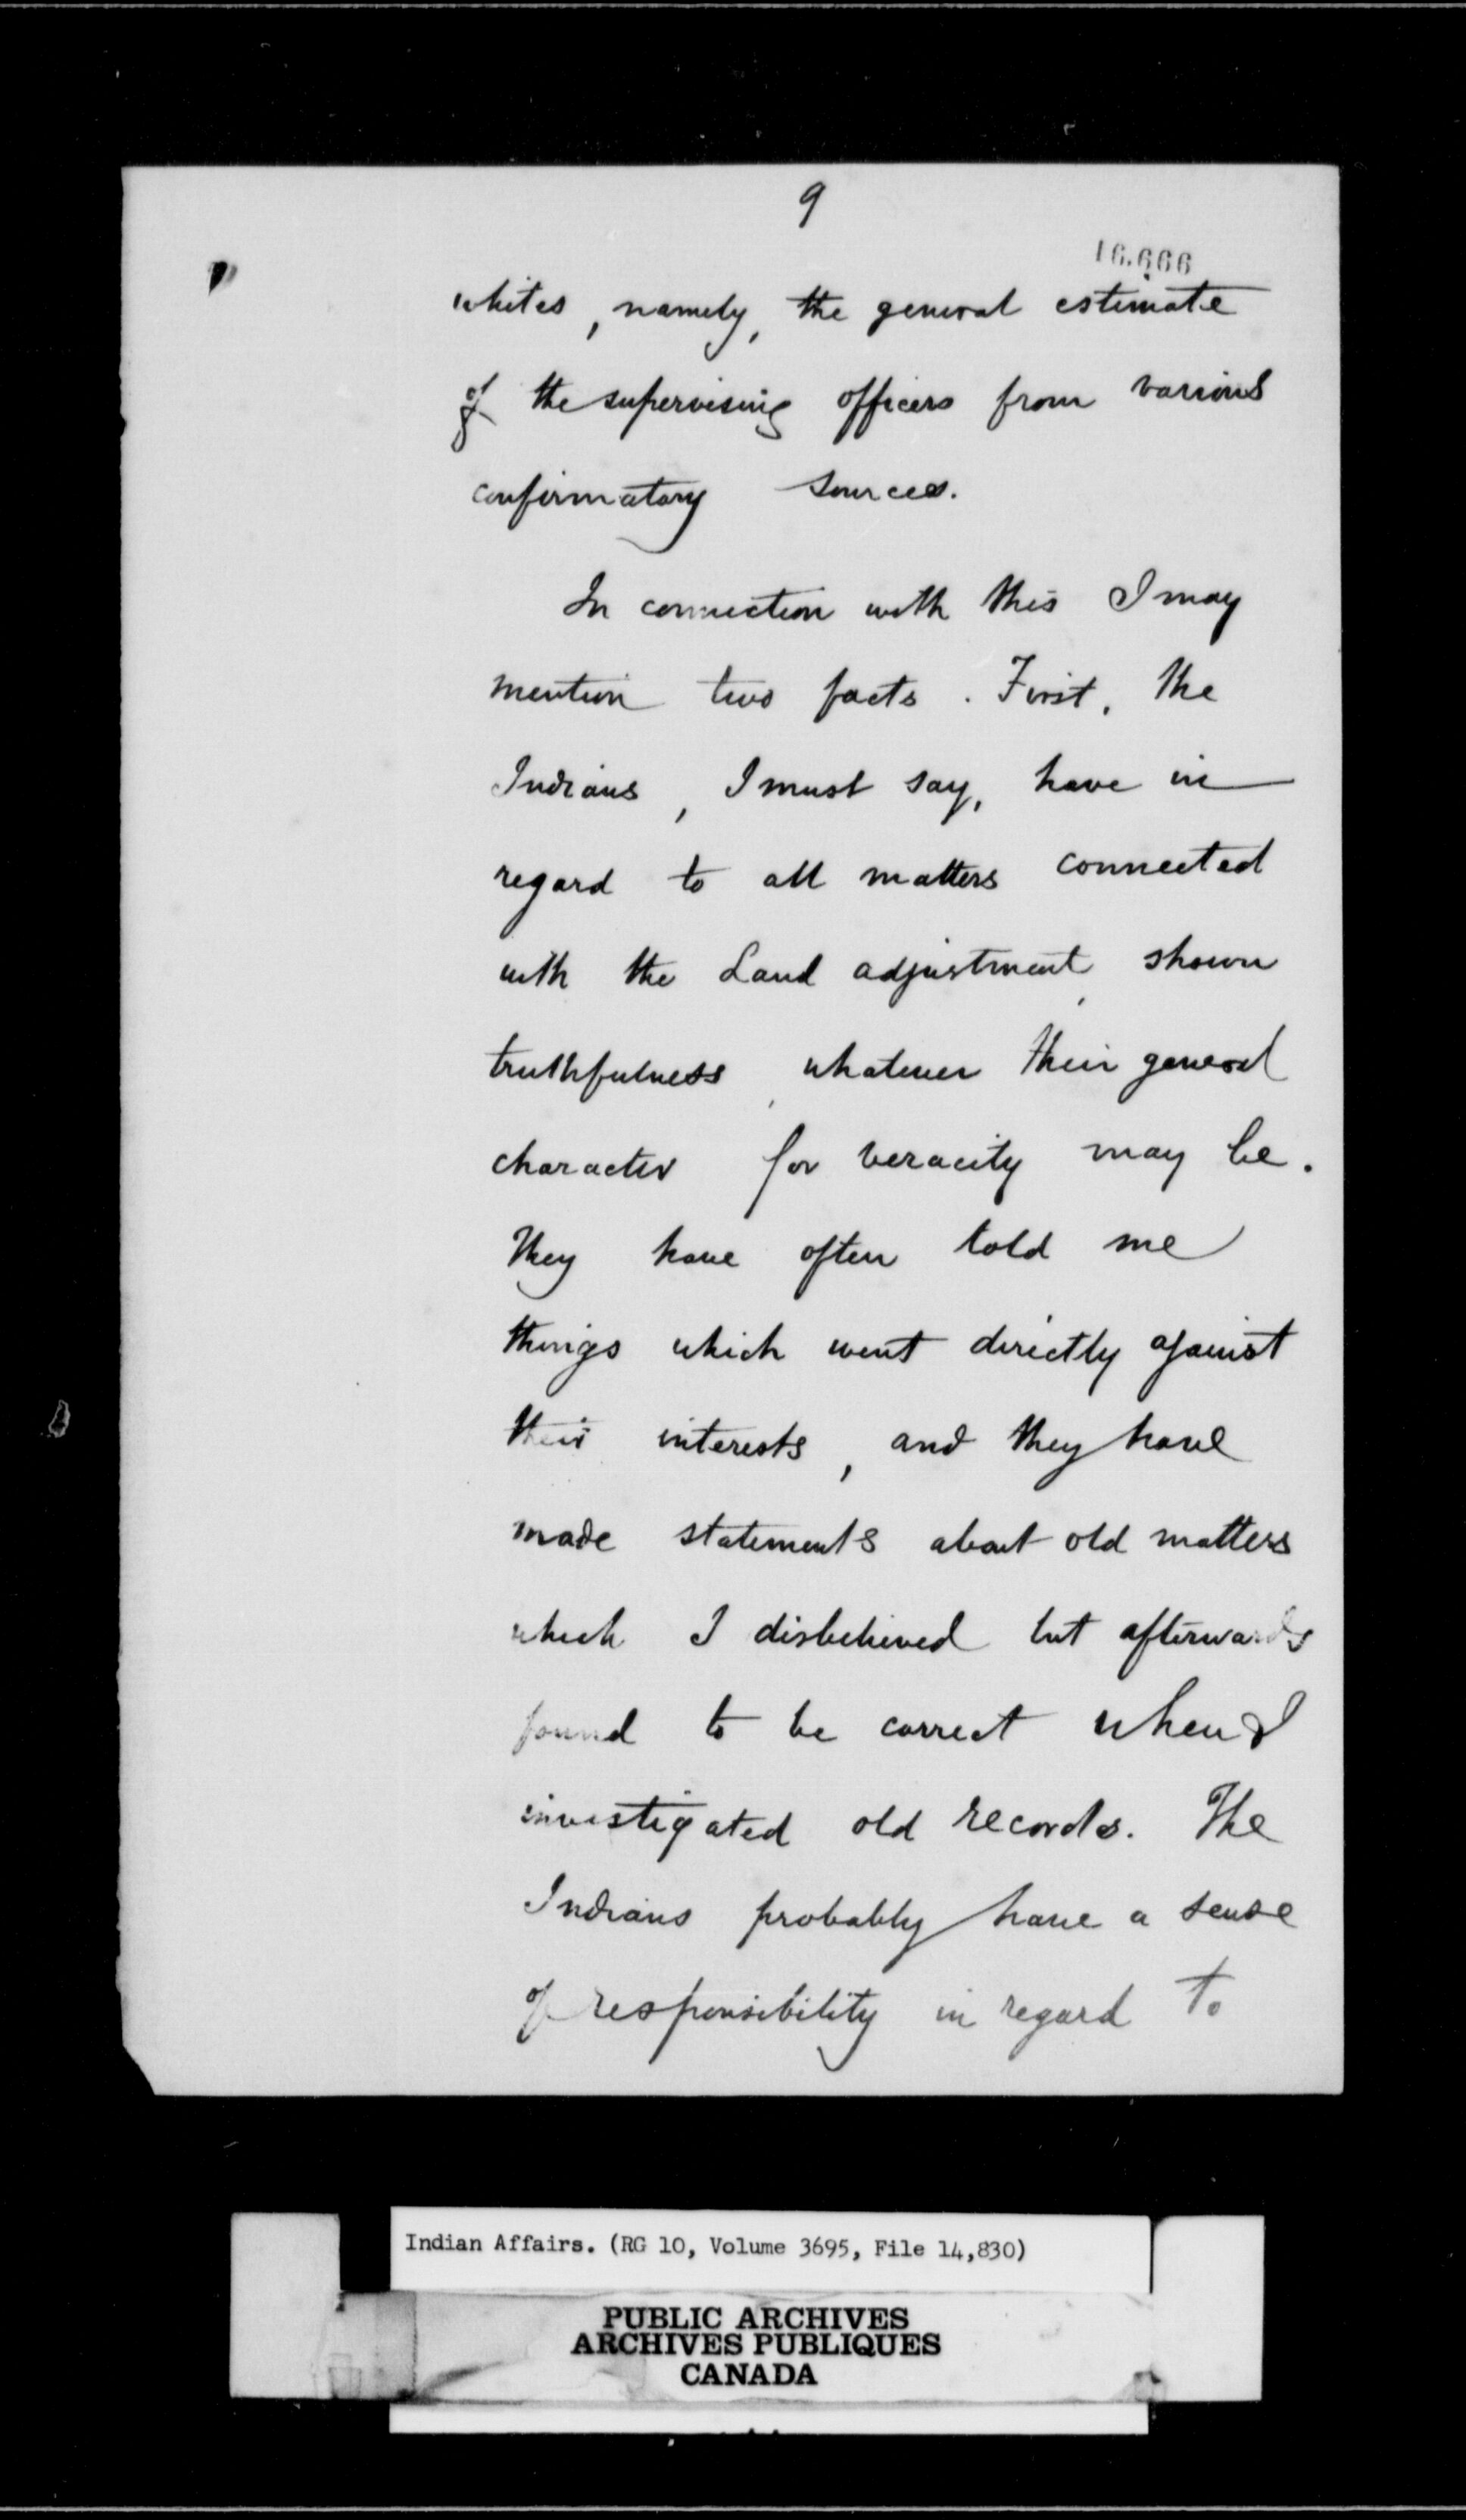 9
16.666
whites, namely, the general estimate
of the supervising officers from various
confirmatory sources.
In connection with this I may
mention two facts. First, the
Indians, I must say, have in
regard to all matters connected
with the Land adjustment, shown
truthfulness, whatever their general
character for veracity may be.
They have often told me
things which went directly against
their interests, and they have
made statements about old matters
which I disbelieved but afterwards
found to be correct when I
investigated old records. The
Indians probably have a sense
of responsibility in regard to
Indian Affairs. (RG 10, Volume 3695, File 14,830)
PUBLIC ARCHIVES
ARCHIVES PUBLIQUES
CANADA